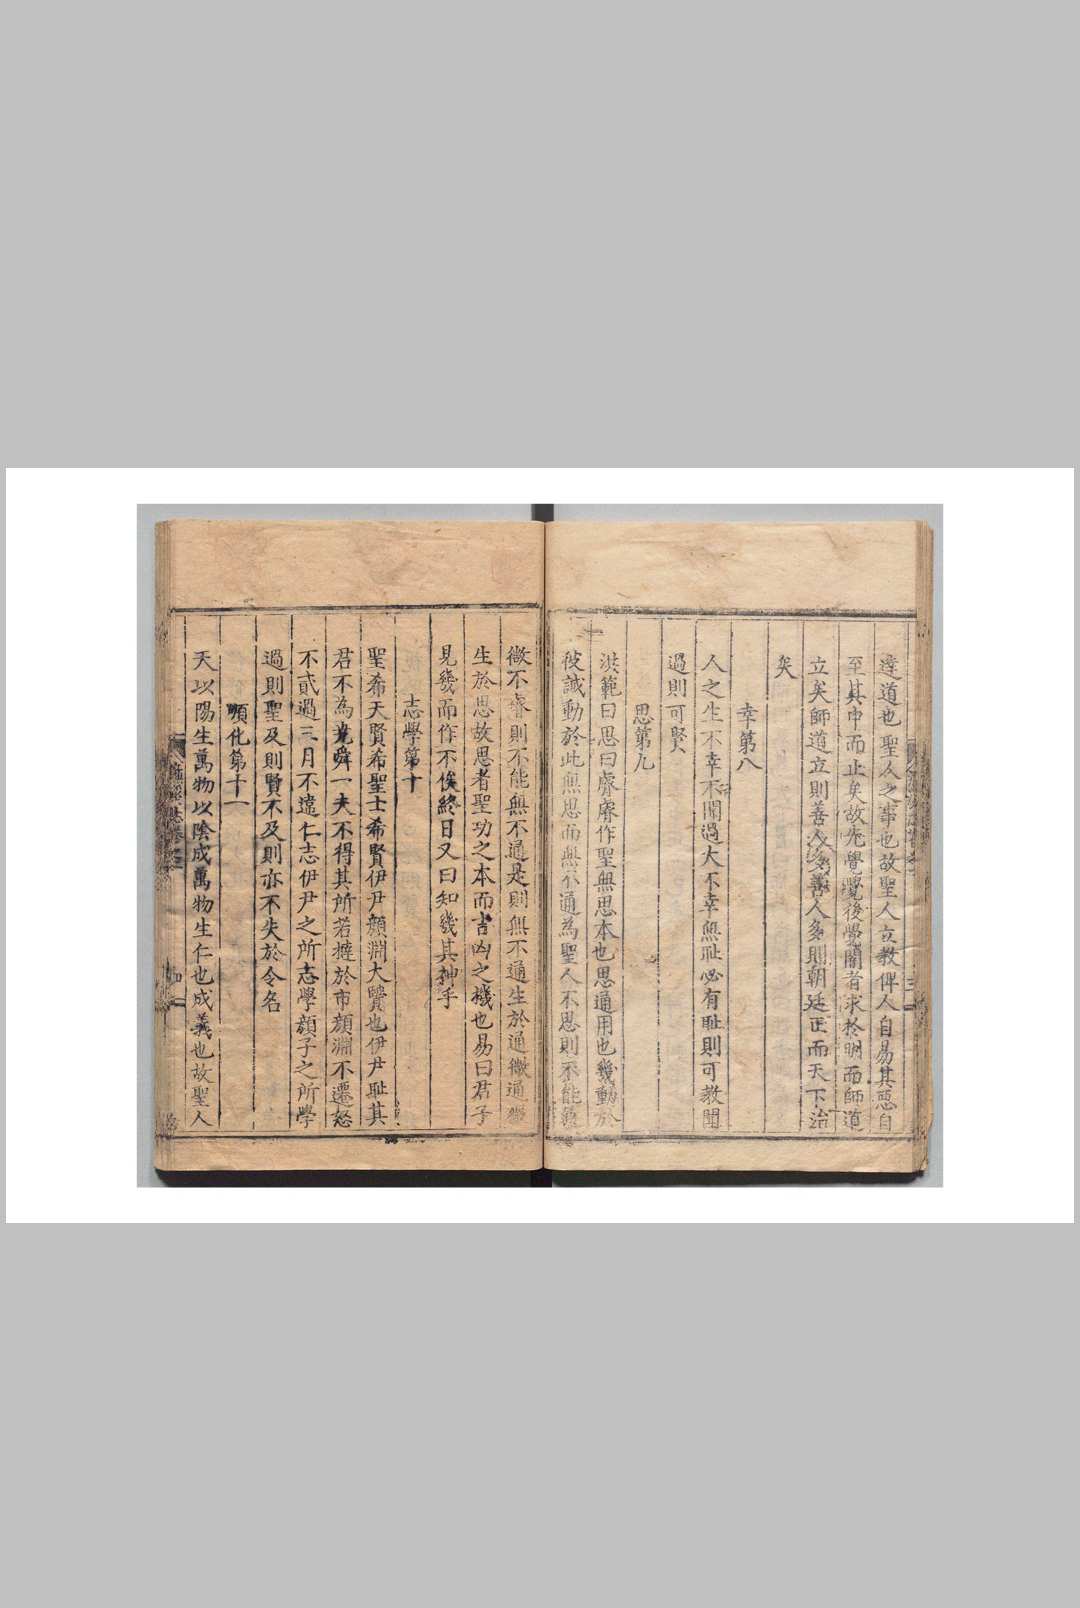 達道也聖人之事也故聖人立教俾人自易其惡自
至其中而止矣故先覺覺後學闇者求於明而師道
立矣師道立則善人多善人多則朝廷正而天下治
矣
幸第八
人之生不幸不聞過大不幸無耻必有耻則可教聞
過則可賢
思第九
洪範曰思曰睿睿作聖無思本也思通用也幾動於
彼誠動於此無思而無不通為聖人不思則不能通
微不睿則不能無不通是則無不通生於通微通微
生於思故思者聖功之本而吉凶之機也易曰君子
見幾而作不俟終日又曰知幾其神乎
志學第十
聖希天賢希聖士希賢伊尹顏淵大賢也伊尹耻其
君不為堯舜一夫不得其所若撻於市顏淵不遷怒
不貳過三月不違仁志伊尹之所志學顏子之所學
過則聖及則賢不及則亦不失於令名
順化第十一
天以陽生萬物以陰成萬物生仁也成義也故聖人